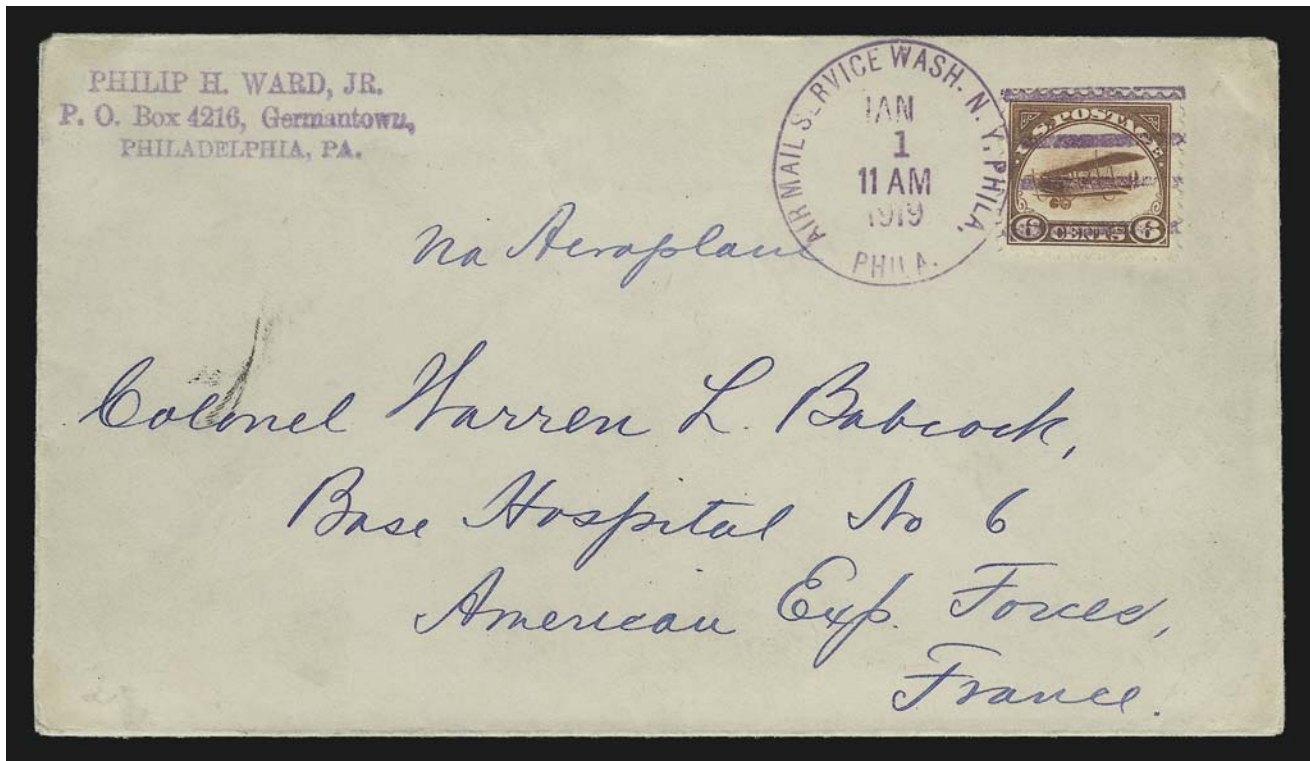 PHILIP H. WARD, JR.
P. O. Box 4216, Germantown,
PHILADELPHIA, PA.
AIR MAIL SERVICE WASH. N. Y. PHILA.
JAN
1
11 AM
1919
PHILA.
U.S. POSTAGE
6 CENTS 6
Via Aeroplane
Colonel Warren L. Babcock,
Base Hospital No 6
American Exp. Forces,
France.